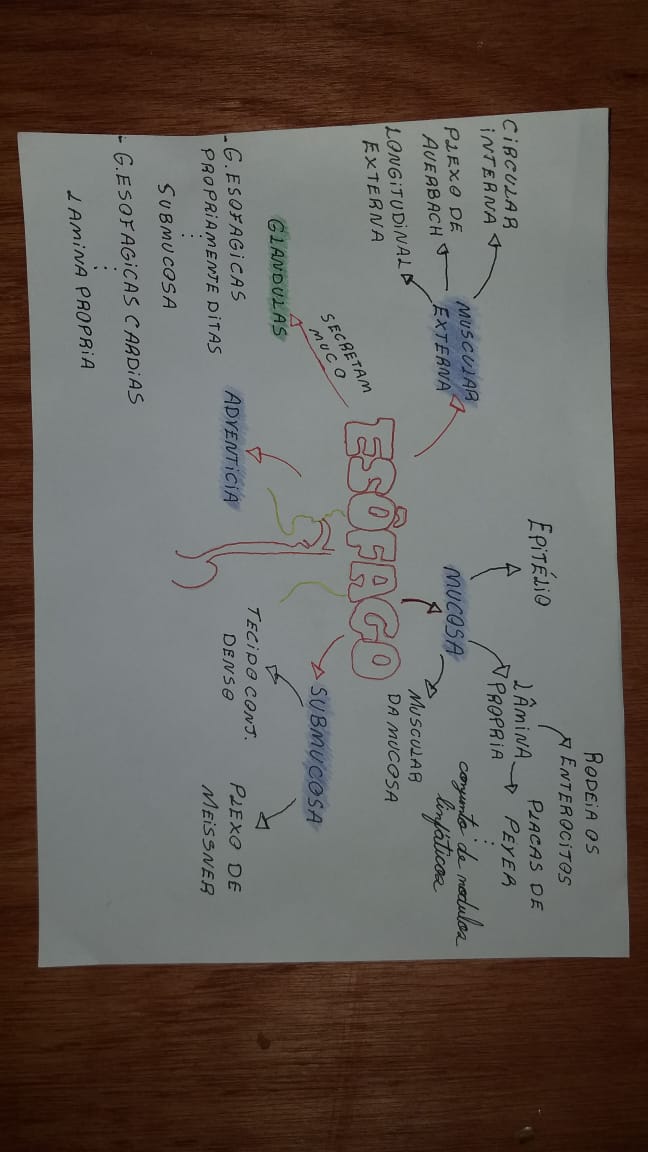 CIRCULAR
INTERNA
PLEXO DE
AUERBACH
LONGITUDINAL
EXTERNA
MUSCULAR
EXTERNA
EPITÉLIO
MUCOSA
LÂMINA
PROPRIA
RODEIA OS
ENTEROCITOS
PLACAS DE
PEYER
conjunto de nodulos
linfáticos
MUSCULAR
DA MUCOSA
ESÔFAGO
SECRETAM
MUCO
GLANDULAS
- G. ESOFAGICAS
PROPRIAMENTE DITAS
:
SUBMUCOSA
- G. ESOFAGICAS CARDIAS
:
LAMINA PROPRIA
ADVENTICIA
SUBMUCOSA
TECIDO CONJ.
DENSO
PLEXO DE
MEISSNER